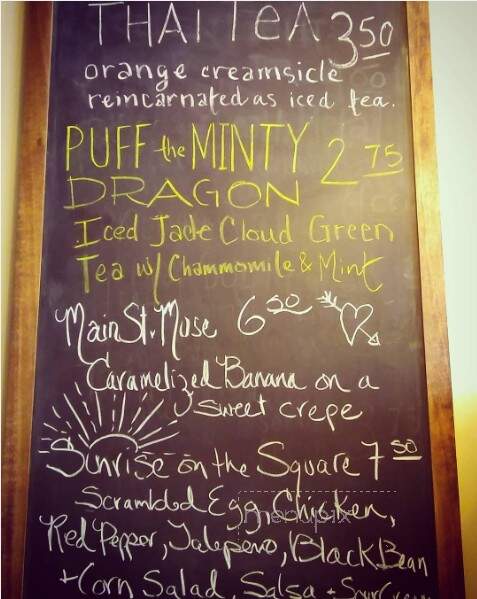 THAI TeA 3.50
orange creamsicle
reincarnated as iced tea.
PUFF the MINTY 2 75
DRAGON
Iced Jade Cloud Green
Tea w/ Chammomile & Mint
Main St. Muse 6 50
Caramelized Banana on a
sweet crepe
Sunrise on the Square 7 50
Scrambled Egg, Chicken,
menupix
Red Pepper, Jalepeno, Black Bean
+ Corn Salad, Salsa + Sour Cream